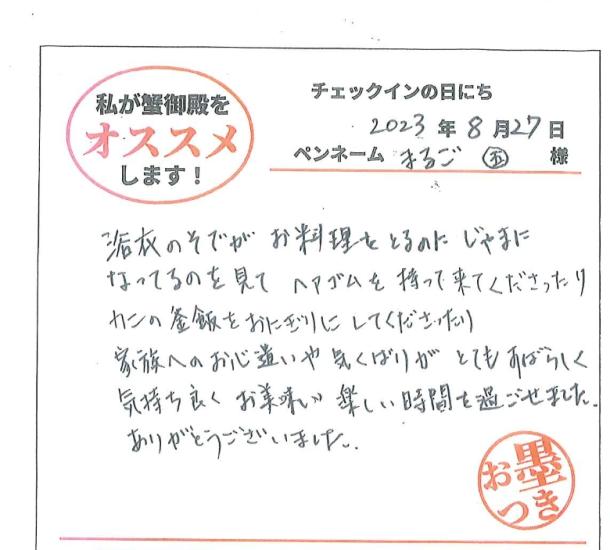 私が蟹御殿を
オススメ
します!
チェックインの日にち
2023年8月27日
ペンネーム まるご 五 様
浴衣のそでが お料理をとるのに じゃまに
なってるのを見て ヘアゴムを持って来てくださったり
カニの釜飯をおにぎりにしてくださったり
家族へのお心遣いや気くばりが とてもすばらしく
気持ち良く お美味しい 楽しい時間を過ごせました。
ありがとうございました。
お墨
つき